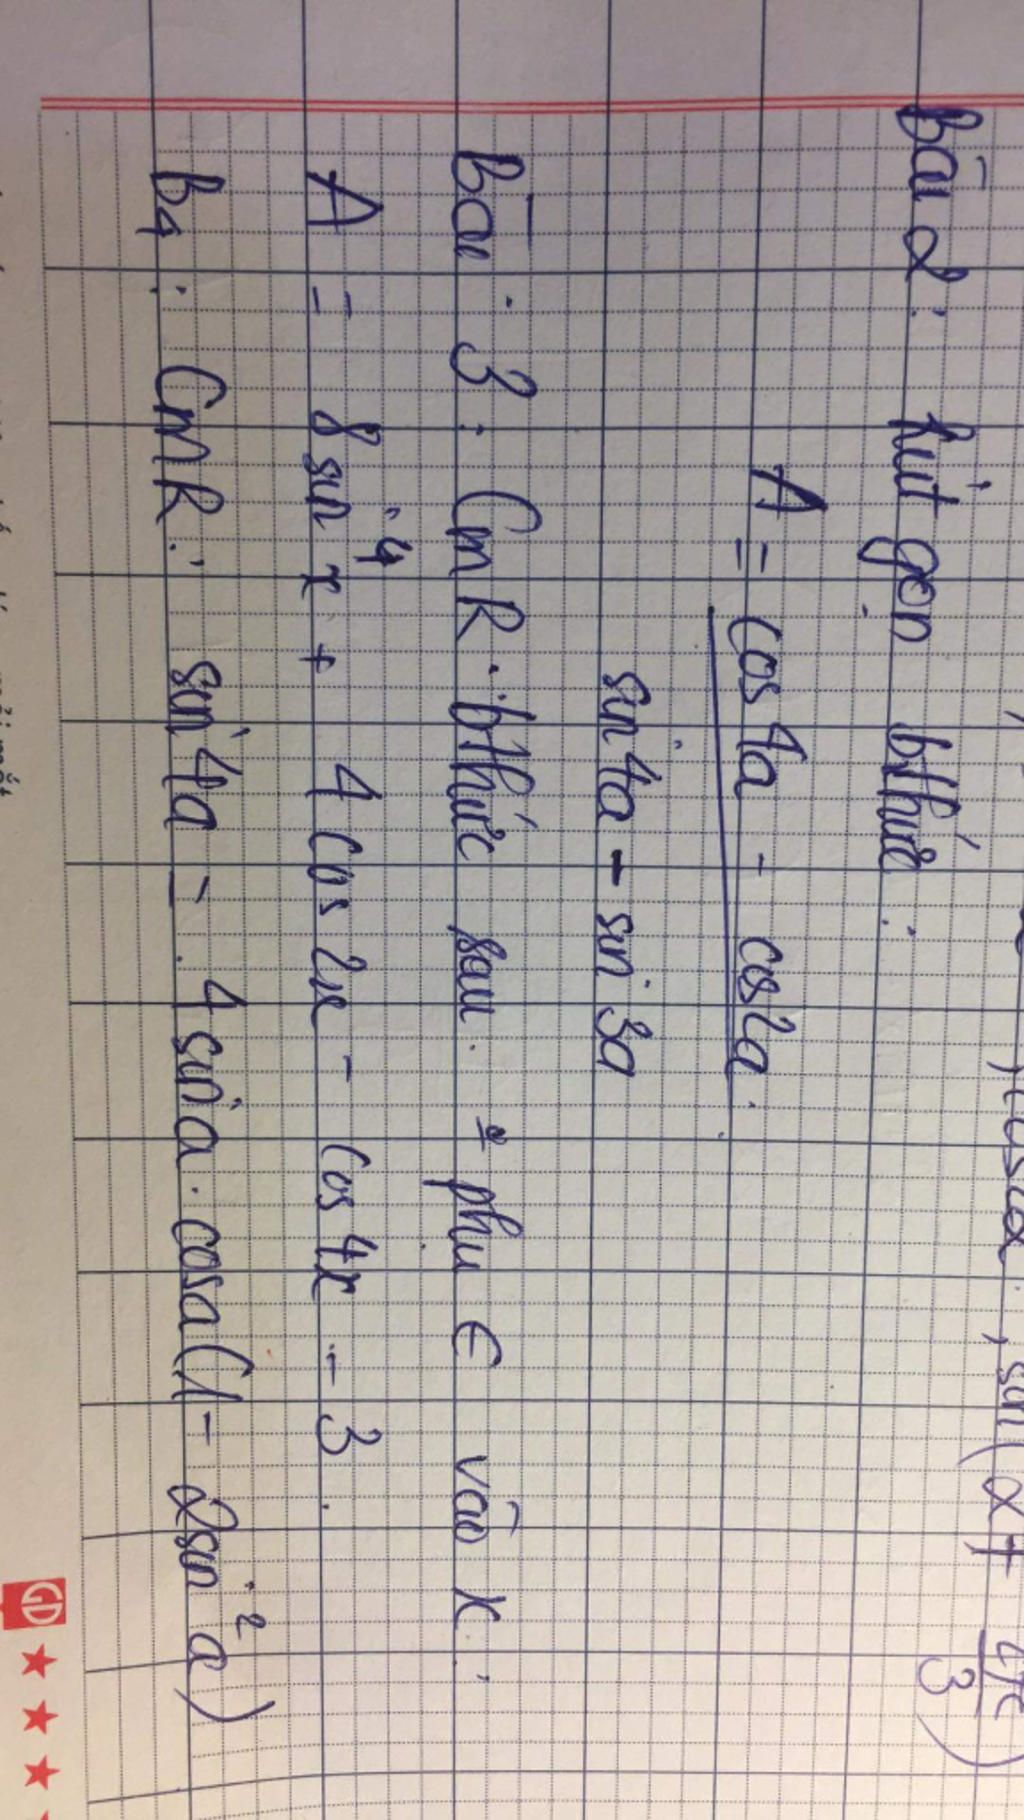 , cosα, sin(α + 3)
Bài 2: Rút gọn bthức:
A = cos4a - cos2a
sin4a - sin3a
Bài 3: CmR bthức sau phụ ∈ vào x:
A = 8sin⁴x + 4cos2x - cos4x - 3.
B4: CMR: sin4a = 4sina.cosa(1 - 2sin²a)
GD